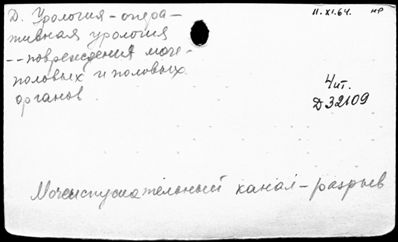 Д. Урология - опера-
тивная урология
-- повреждения моче-
половых и половых
органов
11.XI.64. нр
Чит.
Д32109
Мочеиспускательный канал - разрыв